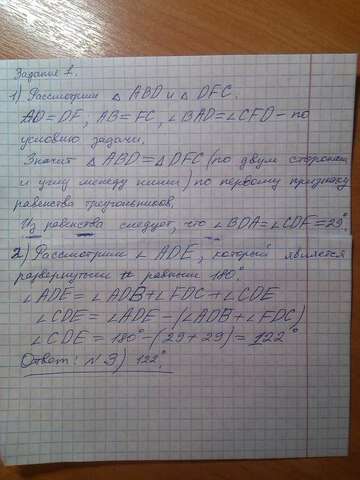 Задание 1.
1) Рассмотрим △ ABD и △ DFC.
AD=DF, AB=FC, ∠BAD=∠CFD - по
условию задачи.
Значит △ ABD=△DFC (по двум сторонам
и углу между ними) по первому признаку
равенства треугольников.
Из равенства следует, что ∠BDA=∠CDF=29°.
2) Рассмотрим ∠ ADE, который является
развернутым и равным 180°.
∠ADE=∠ADB+∠FDC+∠CDE
∠CDE=∠ADE-(∠ADB+∠FDC)
∠CDE=180°-(29+29)=122°
Ответ: №3) 122°.